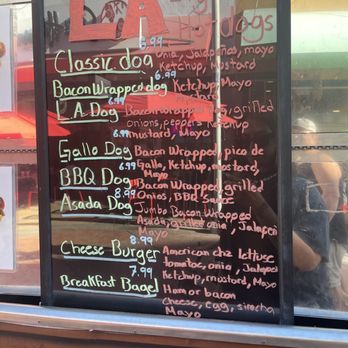 LA
dogs
6.99
Classic dog Onia, Jalapenos, mayo
Ketchup, Mustard
6.99
Bacon Wrapped dog Ketchup, Mayo
6.99
L.A Dog Bacon Wrapped, grilled
onions, peppers Ketchup
6.99 mustard, Mayo
Gallo Dog Bacon Wrapped, pico de
6.99 Gallo, Ketchup, mustard,
Mayo
BBQ Dog Bacon Wrapped, grilled
8.99 Onios, BBQ Sauce
Asada Dog Jumbo Bacon Wrapped
Asada, grilled onia, Jalapeñ
Mayo
8.99
Cheese Burger American chz lettuce
7.99 tomatoe, onia, Jalapeñ
Ketchup, mustard, Mayo
Breakfast Bagel Ham or bacon
Cheese, egg, siracha
Mayo